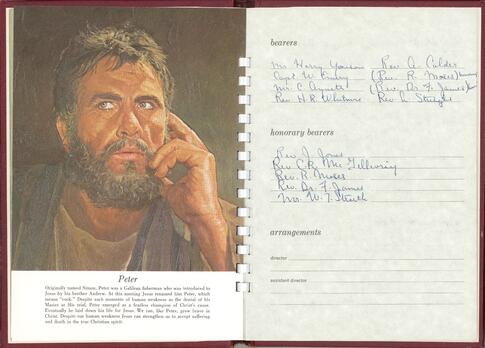 Peter
Originally named Simon, Peter was a Galilean fisherman who was introduced to
Jesus by his brother Andrew. At this meeting Jesus renamed him Peter, which
means "rock." Despite such moments of human weakness as the denial of his
Master at His trial, Peter emerged as a fearless champion of Christ's cause.
Eventually he laid down his life for Jesus. We can, like Peter, grow brave in
Christ. Despite our human weakness Jesus can strengthen us to accept suffering
and death in the true Christian spirit.
bearers
Mr Harry Rev. A. Calder
Capt. W. (Rev. R. Moses)
Mr. C. (Rev. Dr. F. James)
Rev. H.B. Whitmore Rev.
honorary bearers
Rev. J. Jones
Rev. C.R.
Rev. R. Moses
Rev. Dr. F. James
Mr. W. T.
arrangements
director
assistant director